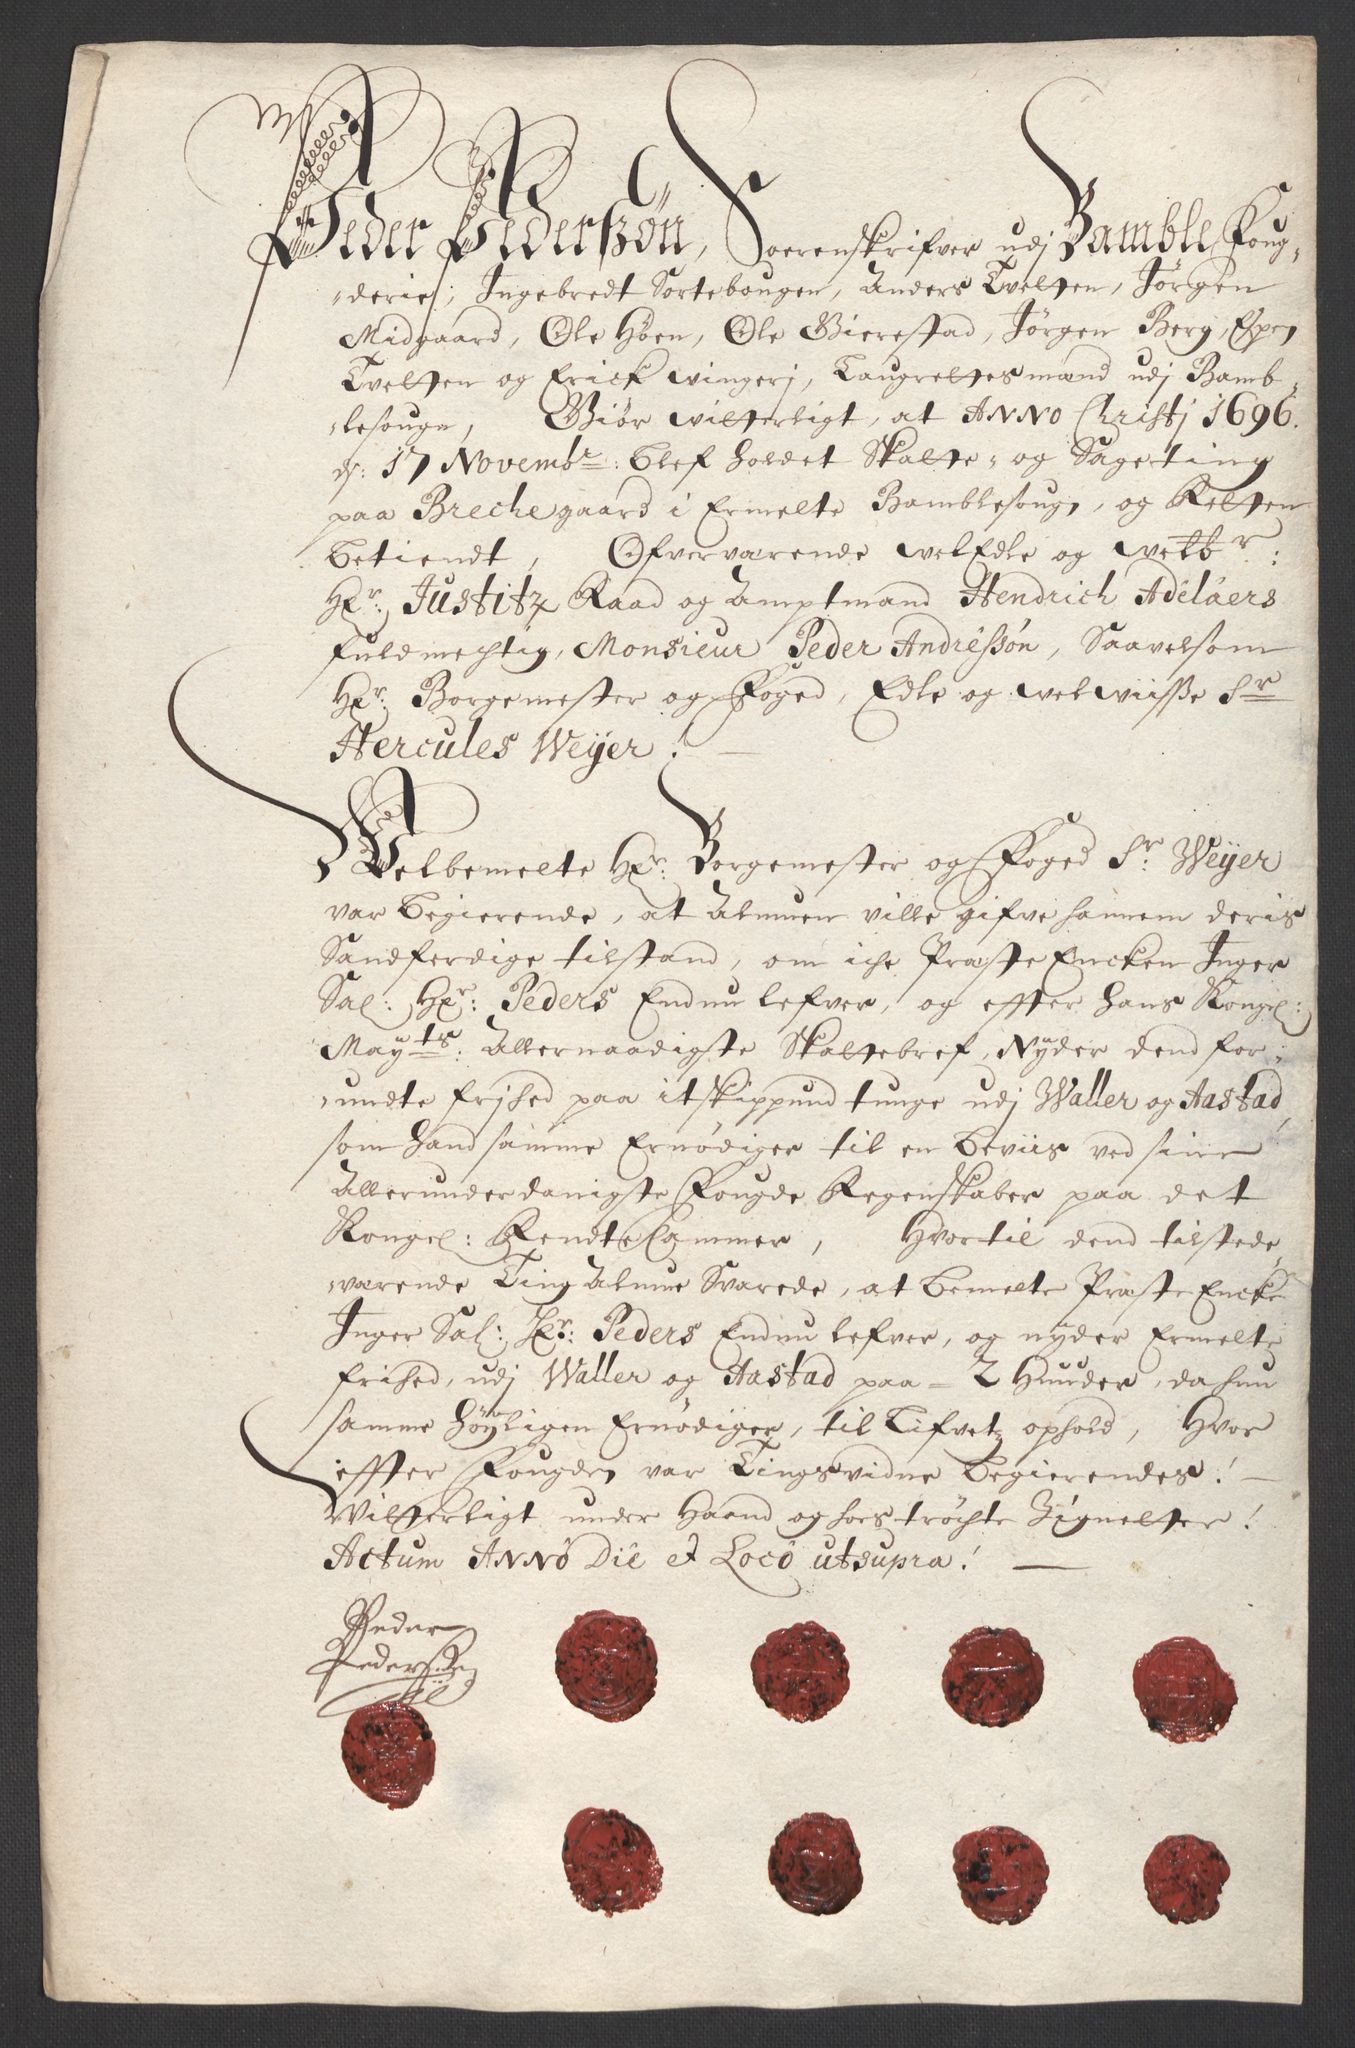 Peder Pederßøn, Soerenskrifver udj Bamble Foug-
derie, Ingebredt Sortebougen, Anders Tvetten, Jørgen
Midgaard, Ole Høen, Ole Bierestad, Jørgen Berg, Espen
Tvetten og Erick wingerj, Laugrettesmænd udj Bamb-
lesougn, Giør witterligt, at ANNO Christj 1696.
d: 17 Novembr: blef holdet Skatte- og Sageting
paa Breche gaard i Ermelte Bamblesougn, og Retten
betiendt, Ofverværende welEdle og welbr:
Hr: Justitz Raad og Amptmand Hendrich Adelaers
fuldmechtig, Monsieur Peder Andreßøn, Saavelsom
Hr: Borgemester og Foged, Edle og welwiisse Sr
Hercules Weyer! —
Welbemelte Hr: Borgemester og Foged Sr: Weyer
var begierende, at Almuen ville gifve hannem deris
Sandferdige tilstand, om iche Præste Encken Inger
Sal: Hr: Peders Endnu lefver, og effter hans Kongel:
Mayts: Allernaadigste Skattebref, Nyder dend for-
undte frjhed paa it skippund tunge udj Waller og Aastad,
som hand samme Ernødiger til en beviis ved sine
Allerunderdanigste Fougde Regenskaber paa det
Kongel: RendteCammer, Hvortil dend tilstede
værende Ting Almue Svarede, at bemelte Præste Encke
Inger Sal: Hr: Peders Endnu lefver, og nyder Ermelte
frihed, udj Waller og Aastad paa - 2 Huuder, da hun
samme høyligen Ernødiger, til Lifvetz ophold, Hvor
effter Fougden var Tingsvidne begierendes! —
Witterligt under Haand og hoes trøchte Zignetter!
Actum ANNO Die et Loco utsupra! —
Peder
Pedersen